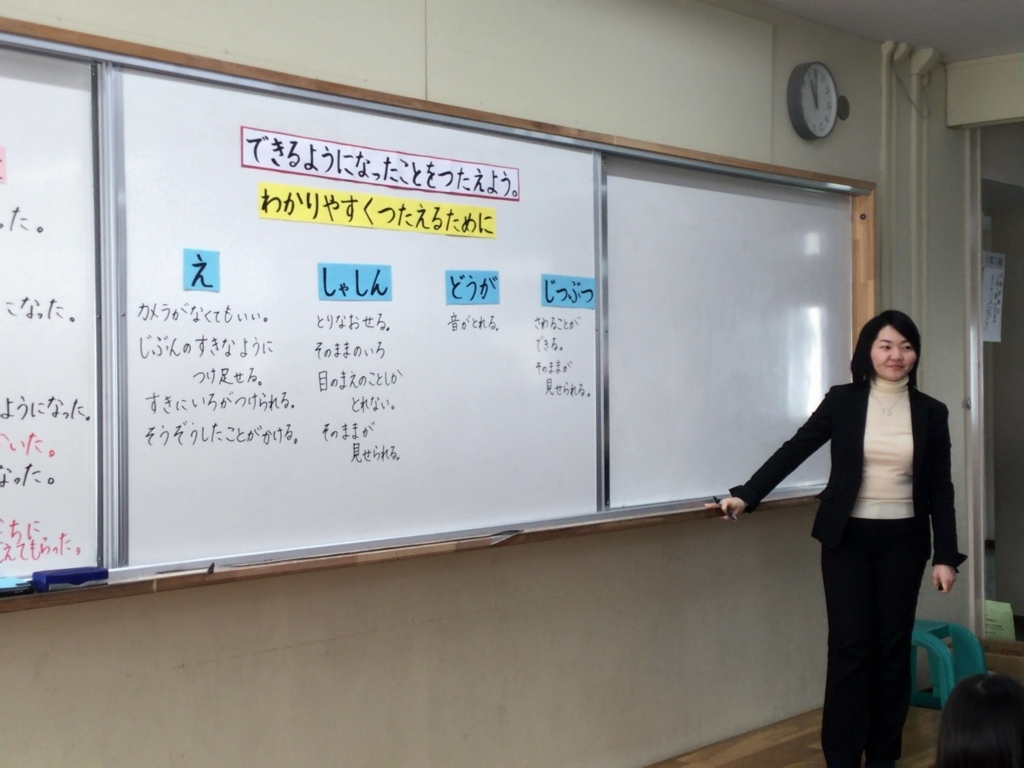 った。
になった。
ようになった。
いた。
なった。
ちに
えてもらった。
できるようになったことをつたえよう。
わかりやすくつたえるために
え
カメラがなくてもいい。
じぶんのすきなように
つけ足せる。
すきにいろがつけられる。
そうぞうしたことがかける。
しゃしん
とりなおせる。
そのままのいろ
目のまえのことしか
とれない。
そのままが
見せられる。
どうが
音がとれる。
じつぶつ
さわることが
できる。
そのままが
見せられる。